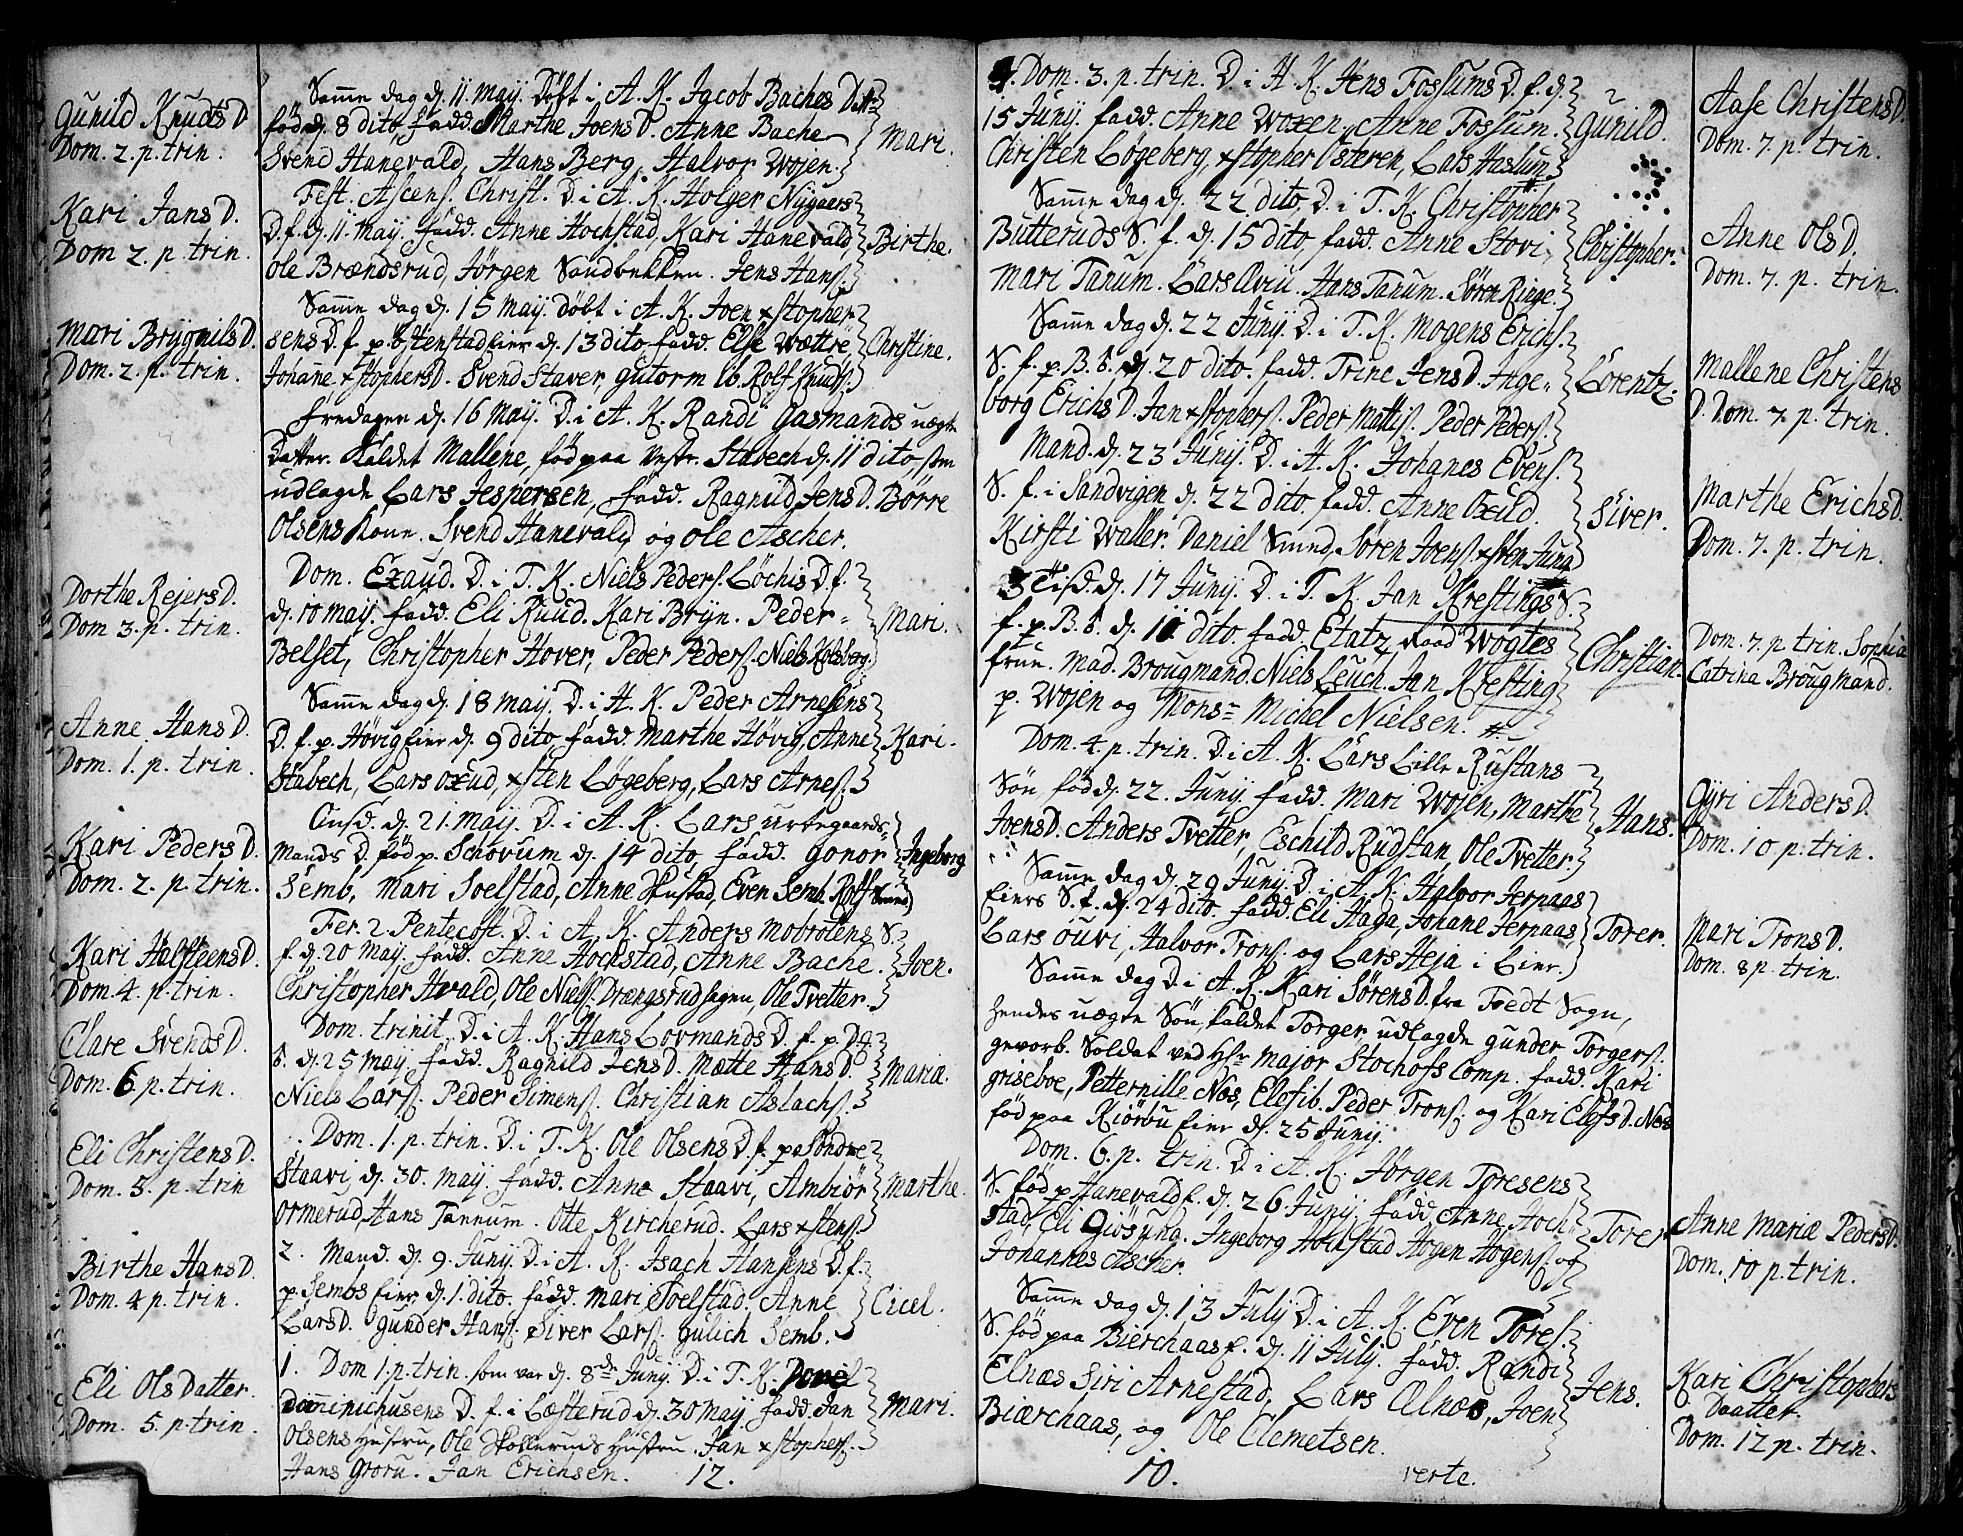 Gunild KnudsD
Dom. 2. p. trin.
Kari JansD.
Dom 2. p. trin.
Mari BrÿgnilsD.
Dom. 2. p. trin.
Dorthe RejersD.
Dom 3. p. trin.
Anne HansD.
Dom. 1. p. trin.
Kari PedersD.
Dom. 2. p. trin.
Kari HalfsteensD.
Dom. 4. p. trin.
Clare SvendsD.
Dom. 6. p. trin.
Eli ChristensD.
Dom. 5. p. trin
Birthe HansD.
Dom. 4 p. trin.
Eli OlsDatter.
Dom. 5. p. trin.
Samme dag d. 11 Maÿ. Døbt i A. K. Jacob Baches Datr
fød d. 8 dito, fadd. Marthe JoensD. Anne Bache
Svend Hanevald, Hans Berg, Halvor Wojen. Mari.
Fest. Ascens. Christ. D. i A. K. Holger Nÿgaers
D. f. d. 11. maÿ. fadd. Anne Hochstad, Kari Hanevald, Birthe.
Ole Brændsrud, Jörgen Sandbekken. Jens Hans.
Samme dag d. 15 maÿ. döbt i A. K. Joen xstopher
sens D. f. p. Östenstad eier d. 13 dito fadd. Else Wættre Christine.
Johane xstophersD. Svend Staver, Gutorm ib. Rolf Knuds.
Fredagen d. 16 maÿ. D. i A. K. Randi Gasmands uægte
Datter. Kaldet Mallene, fød paa Vestr. Stabech d. 11 dito, som
udlagde Lars Jespersen, fadd. Ragnild JensD. Börre
Olsens Kone. Svend Hanevald og Ole Ascher.
Dom. Exaud. D. i T. K. Niels Peders. Löchis D. f.
d. 10 maÿ. fadd. Eli Ruud. Kari Brÿn. Peder Mari.
Belset, Christopher Hover, Peder Peders. Niels Kolsberg.
Samme dag d. 18 maÿ. D. i H. K. Peder Arnesens
D. f. p. Hövig eier d. 9 dito fadd. Marthe Hövig, Anne Kari.
Stabech, Lars Oxud, xsten Lögeberg, Lars Arnes.
Onsd. d. 21. maÿ. D. i A. K. Lars urtegaards-
mands D. fød p. Schovum d. 14 dito, fadd. Gonor Ingeborg
Semb, Mari Soelstad, Anne Skustad, Even Semb. Rolf Smed
Fer. 2. Pentecost. D. i A. K. Anders Mobrotens S.
f. d. 20 maÿ. fadd. Anne Hochstad, Anne Bache. Joen.
Christopher Hvald, Ole Niels. Drængsrudhagen, Ole Tvetter.
Dom. trinit. D. i A. K. Hans Lovmands D. f. p. D. 4.
S. d. 25 maÿ. fadd. Ragnild JensD. Mætte HansD. Mariæ.
Niels Lars. Peder Simens. Christian Aslachs.
Dom. 1. p. trin. D. i T. K. Ole Olsens D. f. paa Söndre
Staavi, d. 30. maÿ. fadd. Anne Staavi, Ambiör Marthe.
Ormerud, Hans Tannum. Otte Kircherud. Lars xstens.
2. Mand. d. 9 Junÿ. D. i A. K. Isach Hansens D. f.
p. Sembs eier, d. 1. dito. fadd. Mari Soelstad. Anne Cicel.
LarsD. Gunder Hans. Siver Lars. Gulich Semb.
1. Dom 1. p. trin. som var d. 8de Junÿ. D. i T. K.
Damminichusens D. f. i Læsterud d. 30 maÿ. fadd. Jan Mari.
Olsens Hustru, Ole Skollerruds Hustru. Jan xstophers.
Hans Groru. Jan Erichsen. 12.
4. Dom. 3. p. trin. D. i H. K. Jens Fossums D. f. d.
15 Junÿ. fadd. Anne Woxen, Anne Fossum. Gunild.
Christen Lögeberg, xstopher Österen, Lars Haslum
Samme dag d. 22 dito, D. i T. K. Christopher
Butteruds S. f. d. 15 dito, fadd. Anne Stovi, Christopher.
Mari Tanum. Lars Aviu. Hans Tanum. Sören Ringe.
Samme dag d. 22 Junÿ. D. i T. K. Mogens Erichs.
S. f. p. B. S. d. 20 dito. fadd. Trine JensD. Inge- Lorentz.
borg ErichsD. Jan xstophers. Peder Mattis. Peder Peders.
Mand. d. 23 Junÿ. D. i H. K. Johanes Evens.
S. f. i Sandvigen d. 22 dito, fadd. Anne Oxud. Siver.
Kirsti Waller. Daniel Smed. Sören Joens. xsten Juna
3 Tisd. d. 17 Junÿ. D. i T. K. Jan Krestings S.
f. p. B. S. d. 10 dito. fadd. Etatz Raad Wogtes Christian.
frue. Mad. Brougmand. Niels Leuch. Jan Kresting
p. Wojen og Monsr Michel Nielsen.
Dom. 4. p. trin. D. i A. K. Lars Lille Rustans
Sön, fød d. 22. Junÿ. fadd. Mari Wojen, Marthe Hans.
JoensD. Anders Tvetter, Eschild Rudstan, Ole Tvetter.
Samme dag d. 29 Junÿ. D. i A. K. Halvor Jernaas
Eiers S. f. d. 24 dito. fadd. Eli Haga, Johane Jernaas, Torer.
Lars Ouvi, Halvor Trons. og Lars Heja i Lier.
Samme dag D. i A. K. Kari SörensD. fra Tvedt Sogn,
hendes uægte Sön, kaldet Torger, udlagde Gunder Torgers.
gevorb. Soldat ved Hr Major Stochofs Comp. fadd. Kari
Griseboe, Petternille Nes, Elef ib. Peder Trons. og Kari ElefsD. Nes
fød paa Kiörbu Eier d. 25 Junij.
Dom. 6. p. trin. D. i A. K. Jörgen Toresens
S. fød p. Hanevalds f. d. 26 Junÿ. fadd. Anne Hoch- Torer
stad, Eli Giösung. Ingeborg Hochstad Hogen Hogens. og
Johannes Ascher.
Samme dag d. 13 Julÿ D. i A. K. Even Tores.
S. fød paa Bierchaas f. d. 11 Julÿ. fadd. Randi
Elnæs Siri Arnestad, Lars Ælnæs, Joen Jens.
Biærchaas, og Ole Clemetsen.
10. verte.
Aase ChristensD.
Dom. 7. p. trin.
Anne OlsD.
Dom. 7. p. trin.
Mallene Christens
D. Dom. 7. p. trin.
Marthe ErichsD.
Dom. 7. p. trin.
Dom. 7. p trin. Sophia
Catrina Brougmand.
Gÿri AndersD.
Dom. 10. p. trin.
Mari TronsD.
Dom. 8 p. trin.
Anne Mariæ PedersD.
Dom. 10 p. trin.
Kari Christophers
Daatter.
Dom. 12 p. trin.